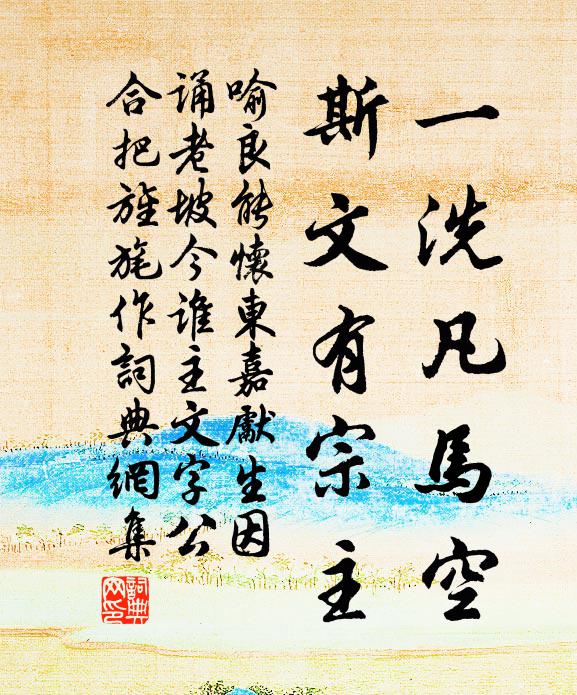 一洗凡馬空
斯文有宗主
喻良能懷東嘉獻生因
誦老坡今誰主文字公
合把旌旄作詞典網集
詞典网印